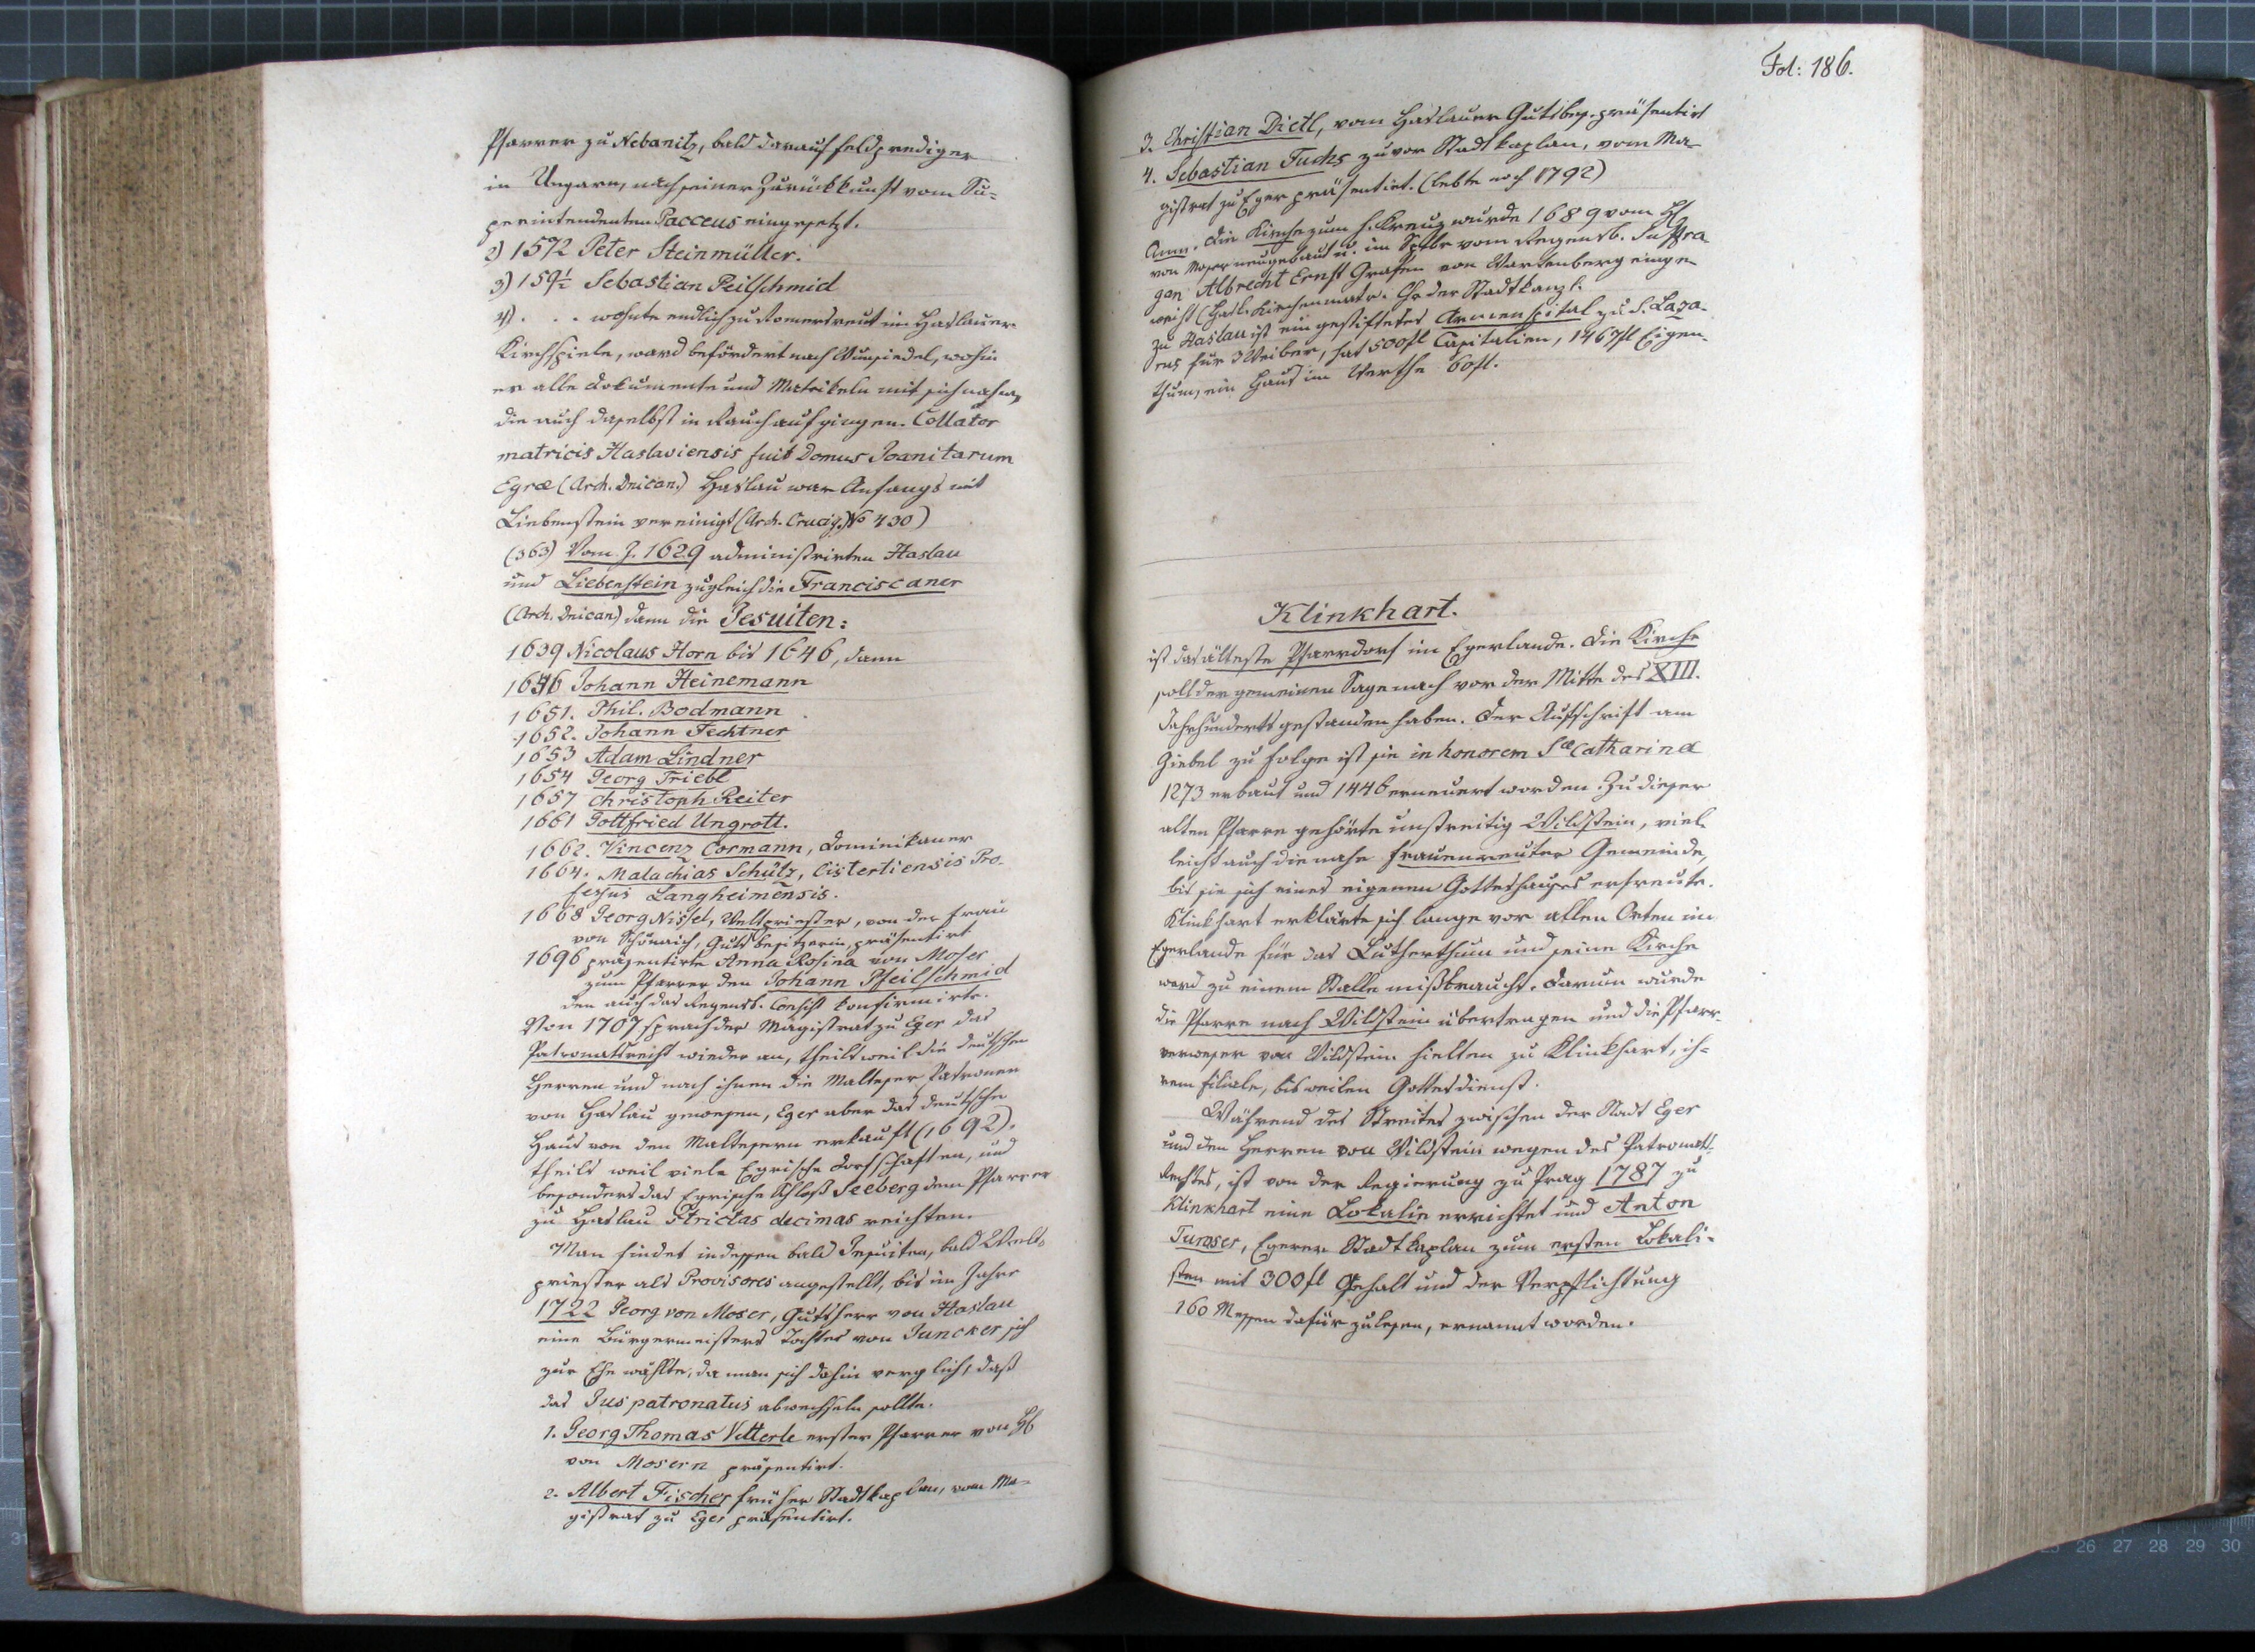 Pfarrer zu Nebanitz, bald darauf Feldprediger
in Ungarn, nach seiner Zurückkunft vom Su-
perintendenten Pacceus eingesetzt.
2) 1572 Peter Steinmüller.
3) 159½ Sebastian Peilschmid
4) . . . wohnte endlich zu Romersreut im Haslauer-
Kirchspiele, ward befördert nach Wunsiedel, wohin
er alle Dokumente und Matrikeln mit sich nahm,
die auch daselbst in Rauch aufgingen. Collator
matricis Haslaviensis fuit Domus Joanitarum
Egræ (Arch. Dnican.) Haslau war Anfangs mit
Liebenstein vereinigt (Arch. Crucig. No 430)
(363) Vom J. 1629 administrirten Haslau
und Liebenstein zugleich die Franciscaner
(Arch. Dnican) dann die Jesuiten:
1639 Nicolaus Horn bis 1646, dann
1646 Johann Heinemann
1651. Phil. Bodmann
1652. Johann Fechtner
1653 Adam Lindner
1654 Georg Triebl
1657 Christoph Reiter
1661 Gottfried Ungrott.
1662. Vincenz Cormann, Dominikaner
1664. Malachias Schütz, Cistertiensis Pro-
fessus Langheimensis.
1668 Georg Nissel, Weltpriester, von der Frau
von Schönaich, Gutsbesitzerin, präsentirt
1696 präsentirte Anna Rosina von Moser
zum Pfarrer den Johann Pfeilschmid
den auch das Regensb. Consist konfirmirte.
Von 1707 sprach der Magistrat zu Eger das
Patronatsrecht wieder an, theils weil die deutschen
Herren und nach ihnen die Malteser Patronen
von Haslau gewesen, Eger aber das deutsche
Haus von den Maltesern erkauft (1692).
theils weil viele Egrische Dorfschaften, und
besonders das Egrische Schloß Seeberg dem Pfarrer
zu Haslau strictas decimas reichten.
Man findet indessen bald Jesuiten, bald Welt-
priester als Provisores angestellt, bis im Jahre
1722 Georg von Moser, Gutsherr von Haslau
eine Bürgermeisters Tochter von Juncker sich
zur Ehe wählte, da man sich dahin verglich, daß
das Jus patronatus abwechseln sollte.
1. Georg Thomas Vetterle erster Pfarrer von H
von Mosern präsentirt.
2. Albert Fischer früher Stadtkaplan, vom Ma-
gistrat zu Eger präsentirt.
Fol: 186.
3. Christian Dietl, vom Haslauer Gutsbes. präsentirt
4. Sebastian Fuchs zuvor Stadtkaplan, vom Ma-
gistrat zu Eger präsentirt. (lebte noch 1792)
Anm. Die Kirche zum h. Kreuz wurde 1689 vom H
von Moser neugebaut u. im Sptbr vom Regensb. Suffra-
gan Albrecht Ernst Grafen von Wartenberg einge-
weiht (Hasl. Kirchenmatr. Chr der Stadtkanzl.
zu Haslau ist ein gestiftetes Armenspital zu S. Laza-
rus für 3 Weiber, hat 500fl Capitalien, 1467fl Eigen-
thum, ein Haus im Werthe 60fl.
Klinkhart.
ist das älteste Pfarrdorf im Egerlande. Die Kirche
soll der gemeinen Sage nach vor der Mitte des XIII.
Jahrhunderts gestanden haben. Der Aufschrift am
Giebel zu Folge ist sie in honorem Sæ Catharinæ
1273 erbaut und 1446 erneuert worden. Zu dieser
alten Pfarre gehörte unstreitig Wildstein, viel-
leicht auch die nahe Frauenreuter Gemeinde,
bis sie sich eines eigenen Gotteshauses erfreute.
Klinkhart erklärte sich lange vor allen Orten im
Egerlande für das Lutherthum und seine Kirche
ward zu einem Stalle mißbraucht. Darum wurde
die Pfarre nach Wildstein übertragen und die Pfarr-
verweser von Wildstein hielten zu Klinkhart, ih-
rem Filiale, bisweilen Gottesdienst.
Während des Streites zwischen der Stadt Eger
und den Herren von Wildstein wegen des Patronats-
Rechtes, ist von der Regierung zu Prag 1787 zu
Klinkhart eine Lokalie errichtet und Anton
Turnser, Egerer Stadtkaplan zum ersten Lokali-
sten mit 300fl Gehalt und der Verpflichtung
160 Messen dafür zu lesen, ernannt worden.